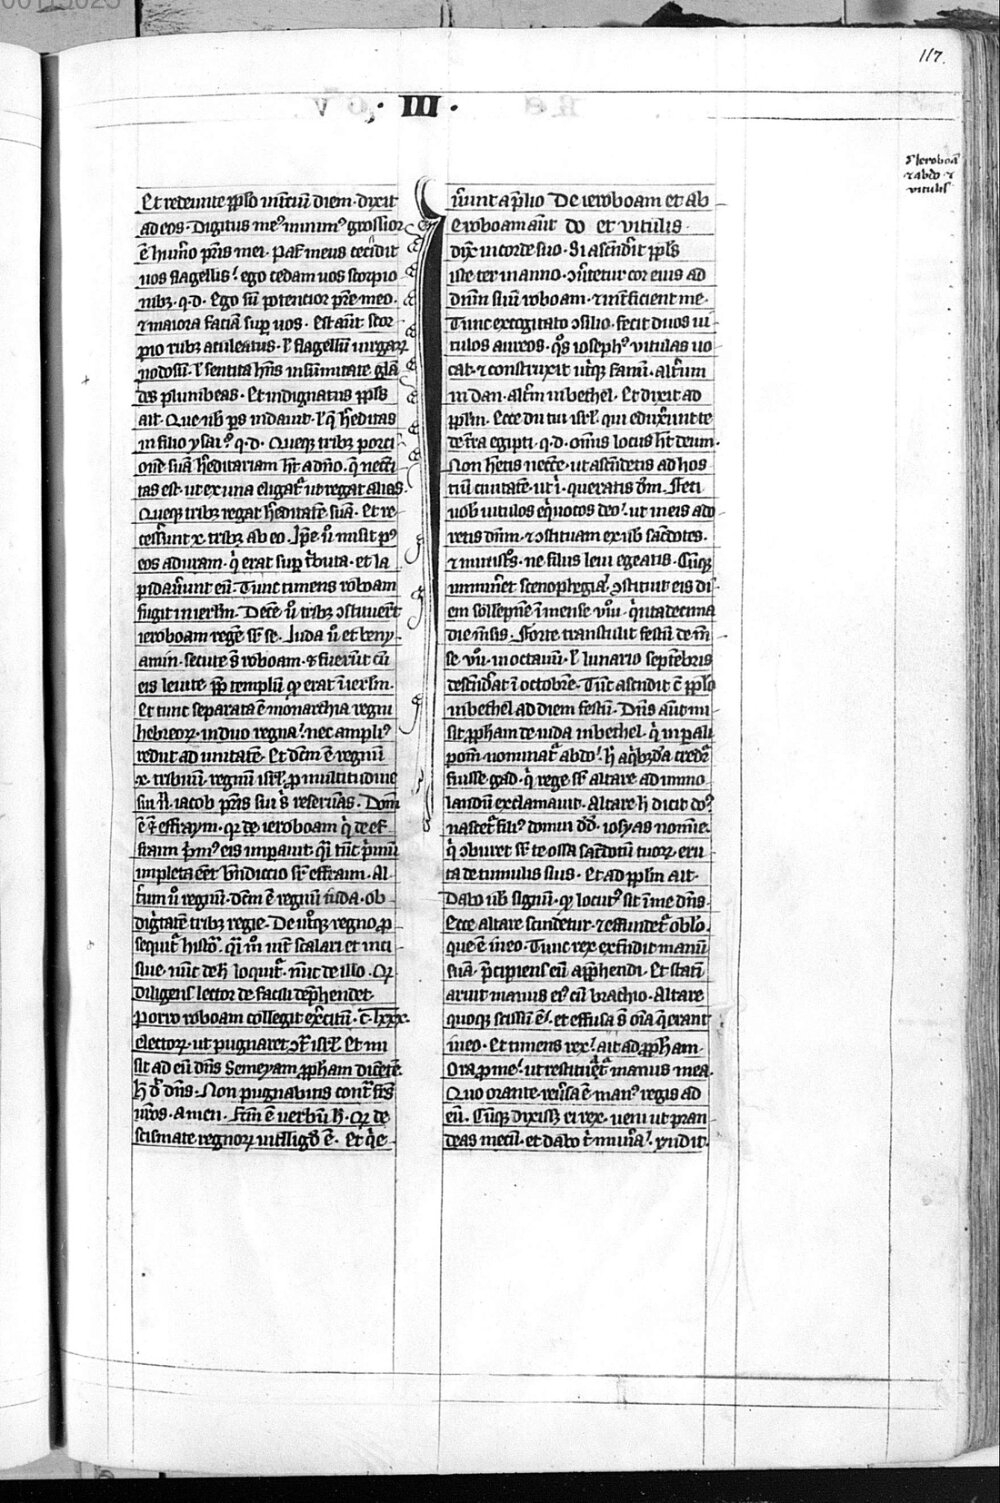 117.
· III ·
s̄ ieroboā
⁊ abdo ⁊
vitulis
Et redeunte pplo in tciū diem · dixit
ad eos · Digitus meꝰ minimꝰ grossior
ē hum̄o pr̄is mei · Pat̄ meus cecidit
uos flagellis ego cedam uos scorpio
nibꝫ · q · d · Ego sū potentior pr̄e meo ·
⁊ maiora faciā sup̄ uos · Est aūt scor
pio rubꝫ aculeatus · ł flagellū uirgaꝝ
nodosū · ł sentita hn̄s in sūmitate glā
des plumbeas · Et indignatus ppls
ait · Que nb̄ ps in dauit · ł q̄ h̄editas
in filio ysai · q · d · Queqꝫ tribꝫ porci
onē suā h̄editariam ht̄ a dn̄o · q̄ nec̄ti
tas est · ut ex una eligat̄ ut regat alias
Queqꝫ tribꝫ regat h̄editatē suā · Et re
cess̄unt x · tribꝫ ab eo · Ip̄e ū misit pꝰ
eos aduram · q̇ erat sup̄ tͥbuta · et la
pidau̅unt eū · Tunc timens roboam
fugit in ier̄lm · Decē ū tribꝫ ꝯstituer̄t
ieroboam regē sr̄ se · Iuda ū et beny
amin · secute s̄ roboam · ⁊ fuer̄t cū
eis leuite · ꝓp templū qd̄ erat ī ier̄lm ·
Et tunc separata ē monarchia regni
hebreoꝝ · in duo regna · nec ampliꝰ
rediit ad unitatē · Et dcm̄ ē regnū
· x · tribuū · regnū isrl̄ · ꝓ multitudine
sui ł · iacob pr̄is sui s̄ reseruās · Dcm̄
ē ⁊ effraym · qꝛ de ieroboam q̇ de ef
fraim pͥmꝰ eis imp̄auit · q̄i tūc pͥmū
impleta eēt b̄ndictio sr̄ effraim · Al
t̄um ū regnū · dcm̄ ē regnū iuda · ob
dig̅tatē tribꝫ regie · De utͦqꝫ regno ꝓ
sequit̄ histōͣ · q̄i mͦ int̄ scalari et inci
siue · nūc de h̄ loquit̄ · nūc de illo · Qd̄
diligens lector de facili dep̄hendet ·
Porro roboam collegit exc̄itū · c̄ · lxxx ·
electoꝝ · ut pugnaret ꝯt̄ isrl̄ · Et mi
sit ad eū dn̄s Semeyam ꝓpham dicētē
h̄ dͥ dn̄s · Non pugnabitis cont̄ fr̄s
ur̄os · Amen · Fcm̄ ē uerbū h̄ · Qd̄ de
scismate regnoꝝ intlligd̄ ē · Et q̇ē
ūunt a p̄lio De ieroboam et ab
Eroboam aūt do et vitulis ·
dix̄ in corde suo · Si ascn̄dit ppls
iste ter in anno · ꝯūtetur cor eius ad
dn̄m suū roboam · ⁊ int̄ficient me ·
Tunc excogitato ꝯsilio · fecit duos ui
tulos aureos · q̄s iosephꝰ vitulas uo
cat · ⁊ construxit utͥqꝫ fanū · alt̄um
in dan · alt̄m in bethel · Et dixit ad
pplm · Ecce dii tui isrl̄ · qui edux̄unt te
de t̄ra egipti · q · d · om̄is locus ht̄ deum ·
Non hetis necc̄e · ut ascn̄detis ad hos
tiū ciuitatē · ut ī · queratis dm̄ · Feci
uob̄ uitulos eq̇uocos deo · ut in eis ado
retis dn̄m · ⁊ ꝯstituam ex uob̄ sacdotes ·
⁊ ministͦs · ne filiis leui egeatis · Cūqꝫ
imminēt scenophegia · ꝯstituit eis di
em sollepnē ī mense viii · qͥntadecima
die msis · Forte transtulit festū de m̄
se · vii · in octauū · ł lunatio septēbris
descn̄dat ī octobrē · Tūc ascendit c̄ pplo
in bethel ad diem festū · Dn̄s aūt mi
sit ꝓpham de iuda in bethel · q̇ in pali
pom̄ · nominat̄ abdo · h̄ aq̇bꝫda cred̄r
fuisse gad · q̇ rege sr̄ altare ad immo
landū exclamauit · Altare h̄ dicit dꝰ
nascet̄ filiꝰ domui dd̄ · iosyas nomīe ·
q̇ ꝯburet sr̄ te ossa sac̄dotū tuoꝝ · eru
ta de tumulis suis · Et ad pplm ait ·
Dabo ub̄ signū · qd̄ locutꝰ sit ī me dn̄s ·
Ecce altare scindetur · ⁊ effundet̄ oblo ·
que ē in eo · Tunc rex extēdit manū
suā · p̄cipiens eū app̄hendi · Et statī
aruit manus eiꝰ cū brachio · Altare
quoqꝫ scissū ē · et effusa s̄ oīa q̄ erant
in eo · Et timens rex · ait ad ꝓpham ·
Ora ꝓ me · ut restituat̄ manus mea ·
Quo orante · reūsa ē manꝰ regis ad
eū · Cūqꝫ dixissꝫ ei rex · ueni ut pran
deas mecū · et dabo tͥ mun̄a · Rn̄dit ·